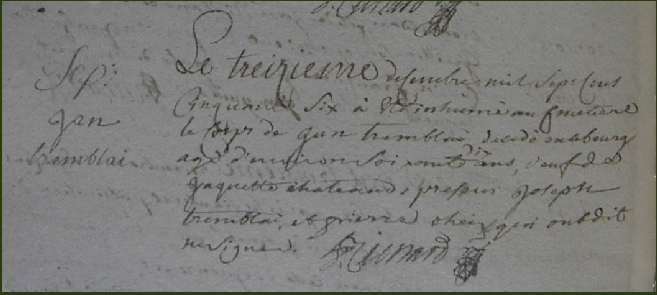 Sep:
jan
tremblai
Le treizieme desembre mil sept cens
cinquante six à été inhumé au cimetiere
le corps de jan tremblai decedé au bourg
agé d'environ soixante ans, veuf de
jaquette chateau, presens joseph
tremblai, et pierre qui ont dit
ne signer.